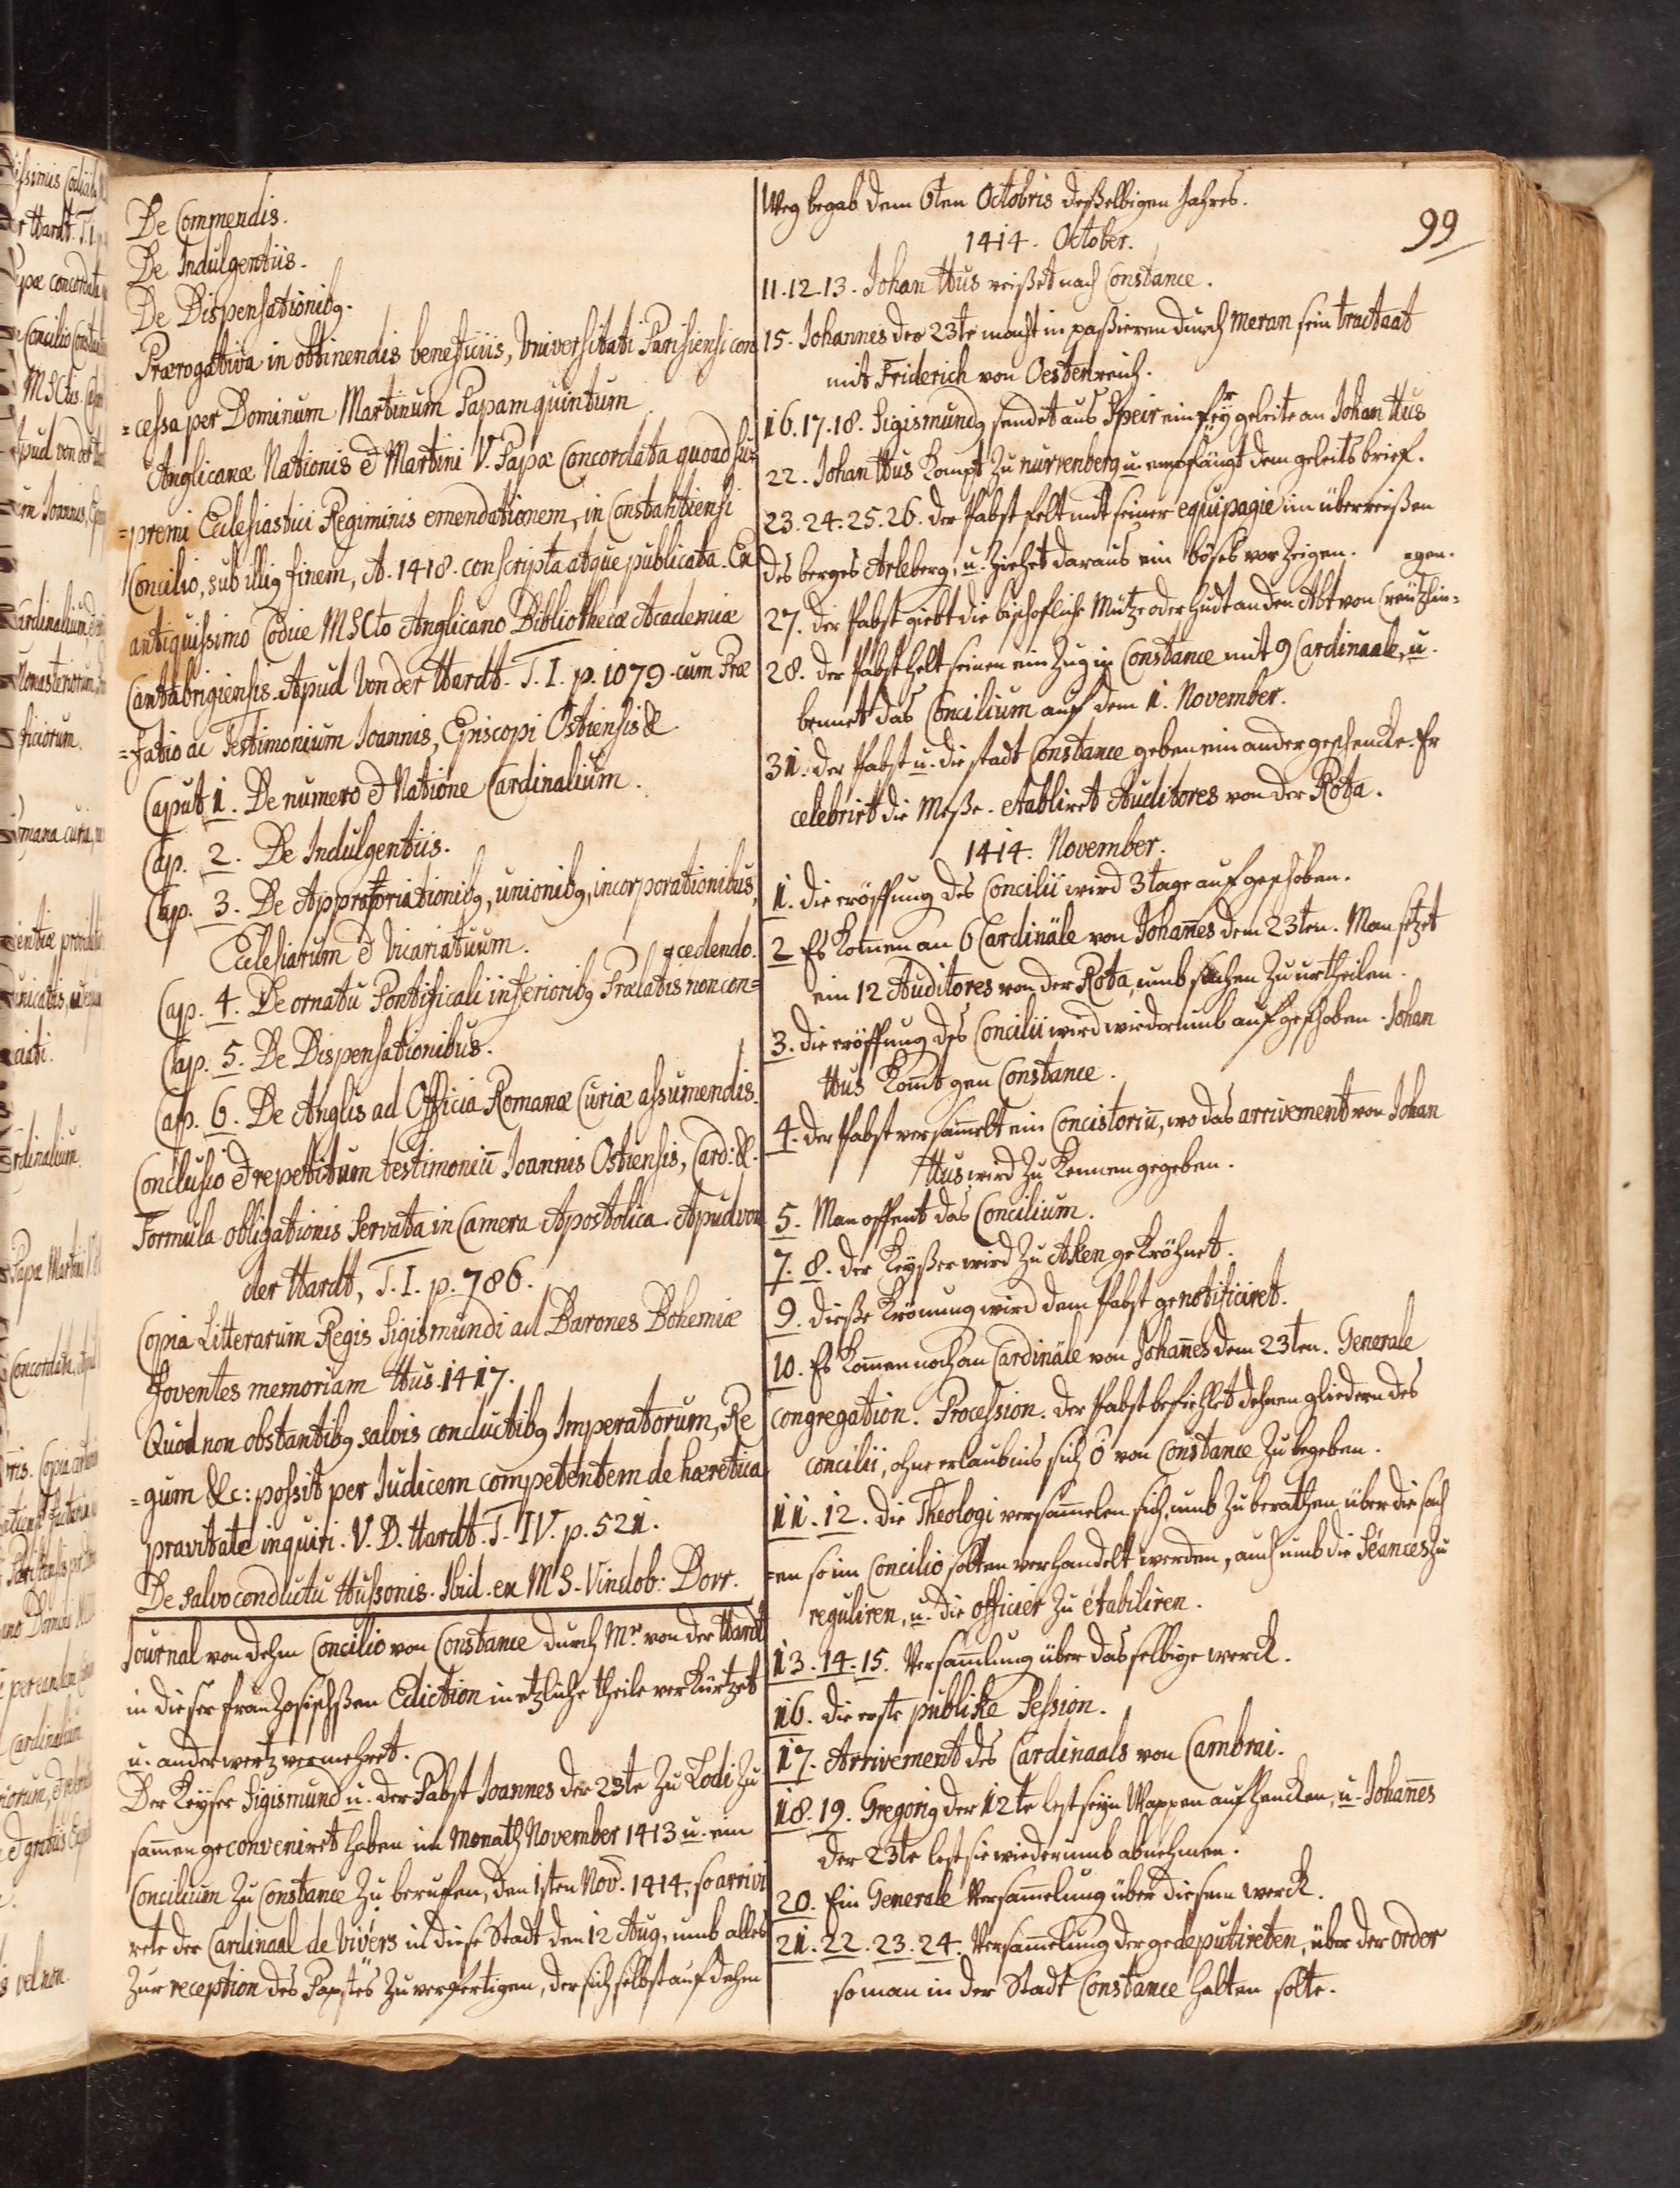 De Commendis.
De Indulgentiis.
De Dispensationibq.
Prærogativa in obtinendis beneficiis, Universitati Parisiensi con
=cessa per Dominum Martinum Papam quintum
Anglicanæ Nationis & Martini V. Papæ Concordata quoad su=
=premi Ecclesiastici Regiminis emendationem, in Constantiensi
Concilio, sub illiq finem, A. 1418. conscripta atque publicata. Ex
antiquissimo Codice MSCto Anglicano Bibliothecæ Academiæ
Cantabrigiensis. Apud Von der Hardt. T. I. p. 1079. cum Præ
=fatio ac Testimonium Ioannis, Episcopi Ostiensis &
Caput 1. De numero & Natione Cardinalium.
Cap. 2. De Indulgentiis.
Cap. 3. De Appropriationibq, unionibq, incorporationibus,
Ecclesiarum & Vicariatuum.
=cedendo.
Cap. 4. De ornatu Pontificali inferioribq Prælatis non con=
Cap. 5. De Dispensationibus.
Cap. 6. De Anglis ad Officia Romanæ Curiæ assumendis.
Conclusio & repetitum testimoniū Ioannis Ostiensis, Card: &.
Formula obligationis servata in Camera Apostolica. Apud von
der Hardt, T. I. p. 786.
Copia Litterarum Regis Sigismundi ad Barones Bohemiæ
foventes memoriam Hus. 1417.
Quod non obstantibq salvis conductibq Imperatorum, Re
=gum &c: possit per Iudicem competentem de hæretica
pravitate inquiri. V. D. Hardt. T. IV. p. 521.
De salvo conductu Hussonis. Ibid. ex MS. Vindob: Dorr.
Journal von dehm Concilio von Constance durch Mr. von der Hardt
in dieser franzosischßen Ediction in etzliche theile verkürtzet
u. anderwertz vermehret.
Der Keyser Sigismund u. der Pabst Joannes der 23te zu Lodi zu
sammen geconveniret haben im Monath November 1413 u. ein
Concilium zu Constance zu beruffen, den 1sten Nov. 1414, so arrivi
rete der Cardinaal de Vivers in diese Stadt den 12 Aug, umb alles
zur reception des Papstes zu verfertigen, der sich selbst auf dehm
99
Weg begab dem 6ten Octobris deßelbigen Jahres.
1414. October.
11.12.13. Johan Hus reißet nach Constance.
15. Johannes der 23te macht in paßieren durch Meran sein tractaat
mit Friderich von Oestenreich.
16.17.18. Sigismundq sendet aus Speir ein frey geleite an Johan Hus
22. Johan Hus kompt zu nurrenberg u. empfängt dem geleits brief.
23.24.25.26. der Pabst felt mit seiner equipagie im überreißen
des berges Arleberg, u. ziehet daraus ein böses vorzeigen.
=gen.
27. der Pabst giebt die bischofliche Mütze oder hudt an den Abt von Creützlin=
28. der Pabst helt seinen ein zug in Constance mit 9 Cardinaale, u.
bennet das Concilium auf dem 1. November.
31. der Pabst u. die stadt Constance geben ein ander geschencke. Er
celebrirt die Meße. etabliret Auditores von der Rota.
1414. November.
1. die eröffung des Concilii wird 3 tage auf geschoben.
2 Es komen an 6 Cardinäle von Johañes dem 23ten. Man setzet
ein 12 Auditores von der Rota, umb sachen zu urtheilen.
3. die eröffung des Concilii wird wiederumb auf geschoben. Johan
Hus komt gen Constance.
4. der Pabst versamelt ein Concistoriū, wo das arrivement von Johan
Hus wird zu kennen gegeben.
5. Man offent das Concilium.
7. 8. der Keyßer wird zu Aken gekröhnet.
9. dieße krönung wird dem Pabst genotificiret.
10. Es komen noch an Cardinäle von Johañes dem 23ten. Generale
congregation. Procession. der Pabst befiehlet dehnen gliedern des
concilii, ohne erlaubnis sich ō von Constance zu begeben.
11. 12. Die Theologi versamelen sich, umb zu berathen über die sach
=en so im Concilio solten verhandelt werden, auch umb die Séances zu
reguliren, u. die officier zu étabiliren.
13. 14. 15. Versamlung über das selbige werck.
16. die erste publike Session.
17. Arrivement des Cardinaals von Cambrai.
18. 19. Gregoriq der 12te lest seyn Wappen aufhencken, u. Johañes
der 23te lest sie wiederumb abnehmen.
20. Ein Generale Versamelung über diesem werck.
21. 22. 23. 24. Versamelung der gedeputireten, über der order
so man in der Stadt Constance halten solte.